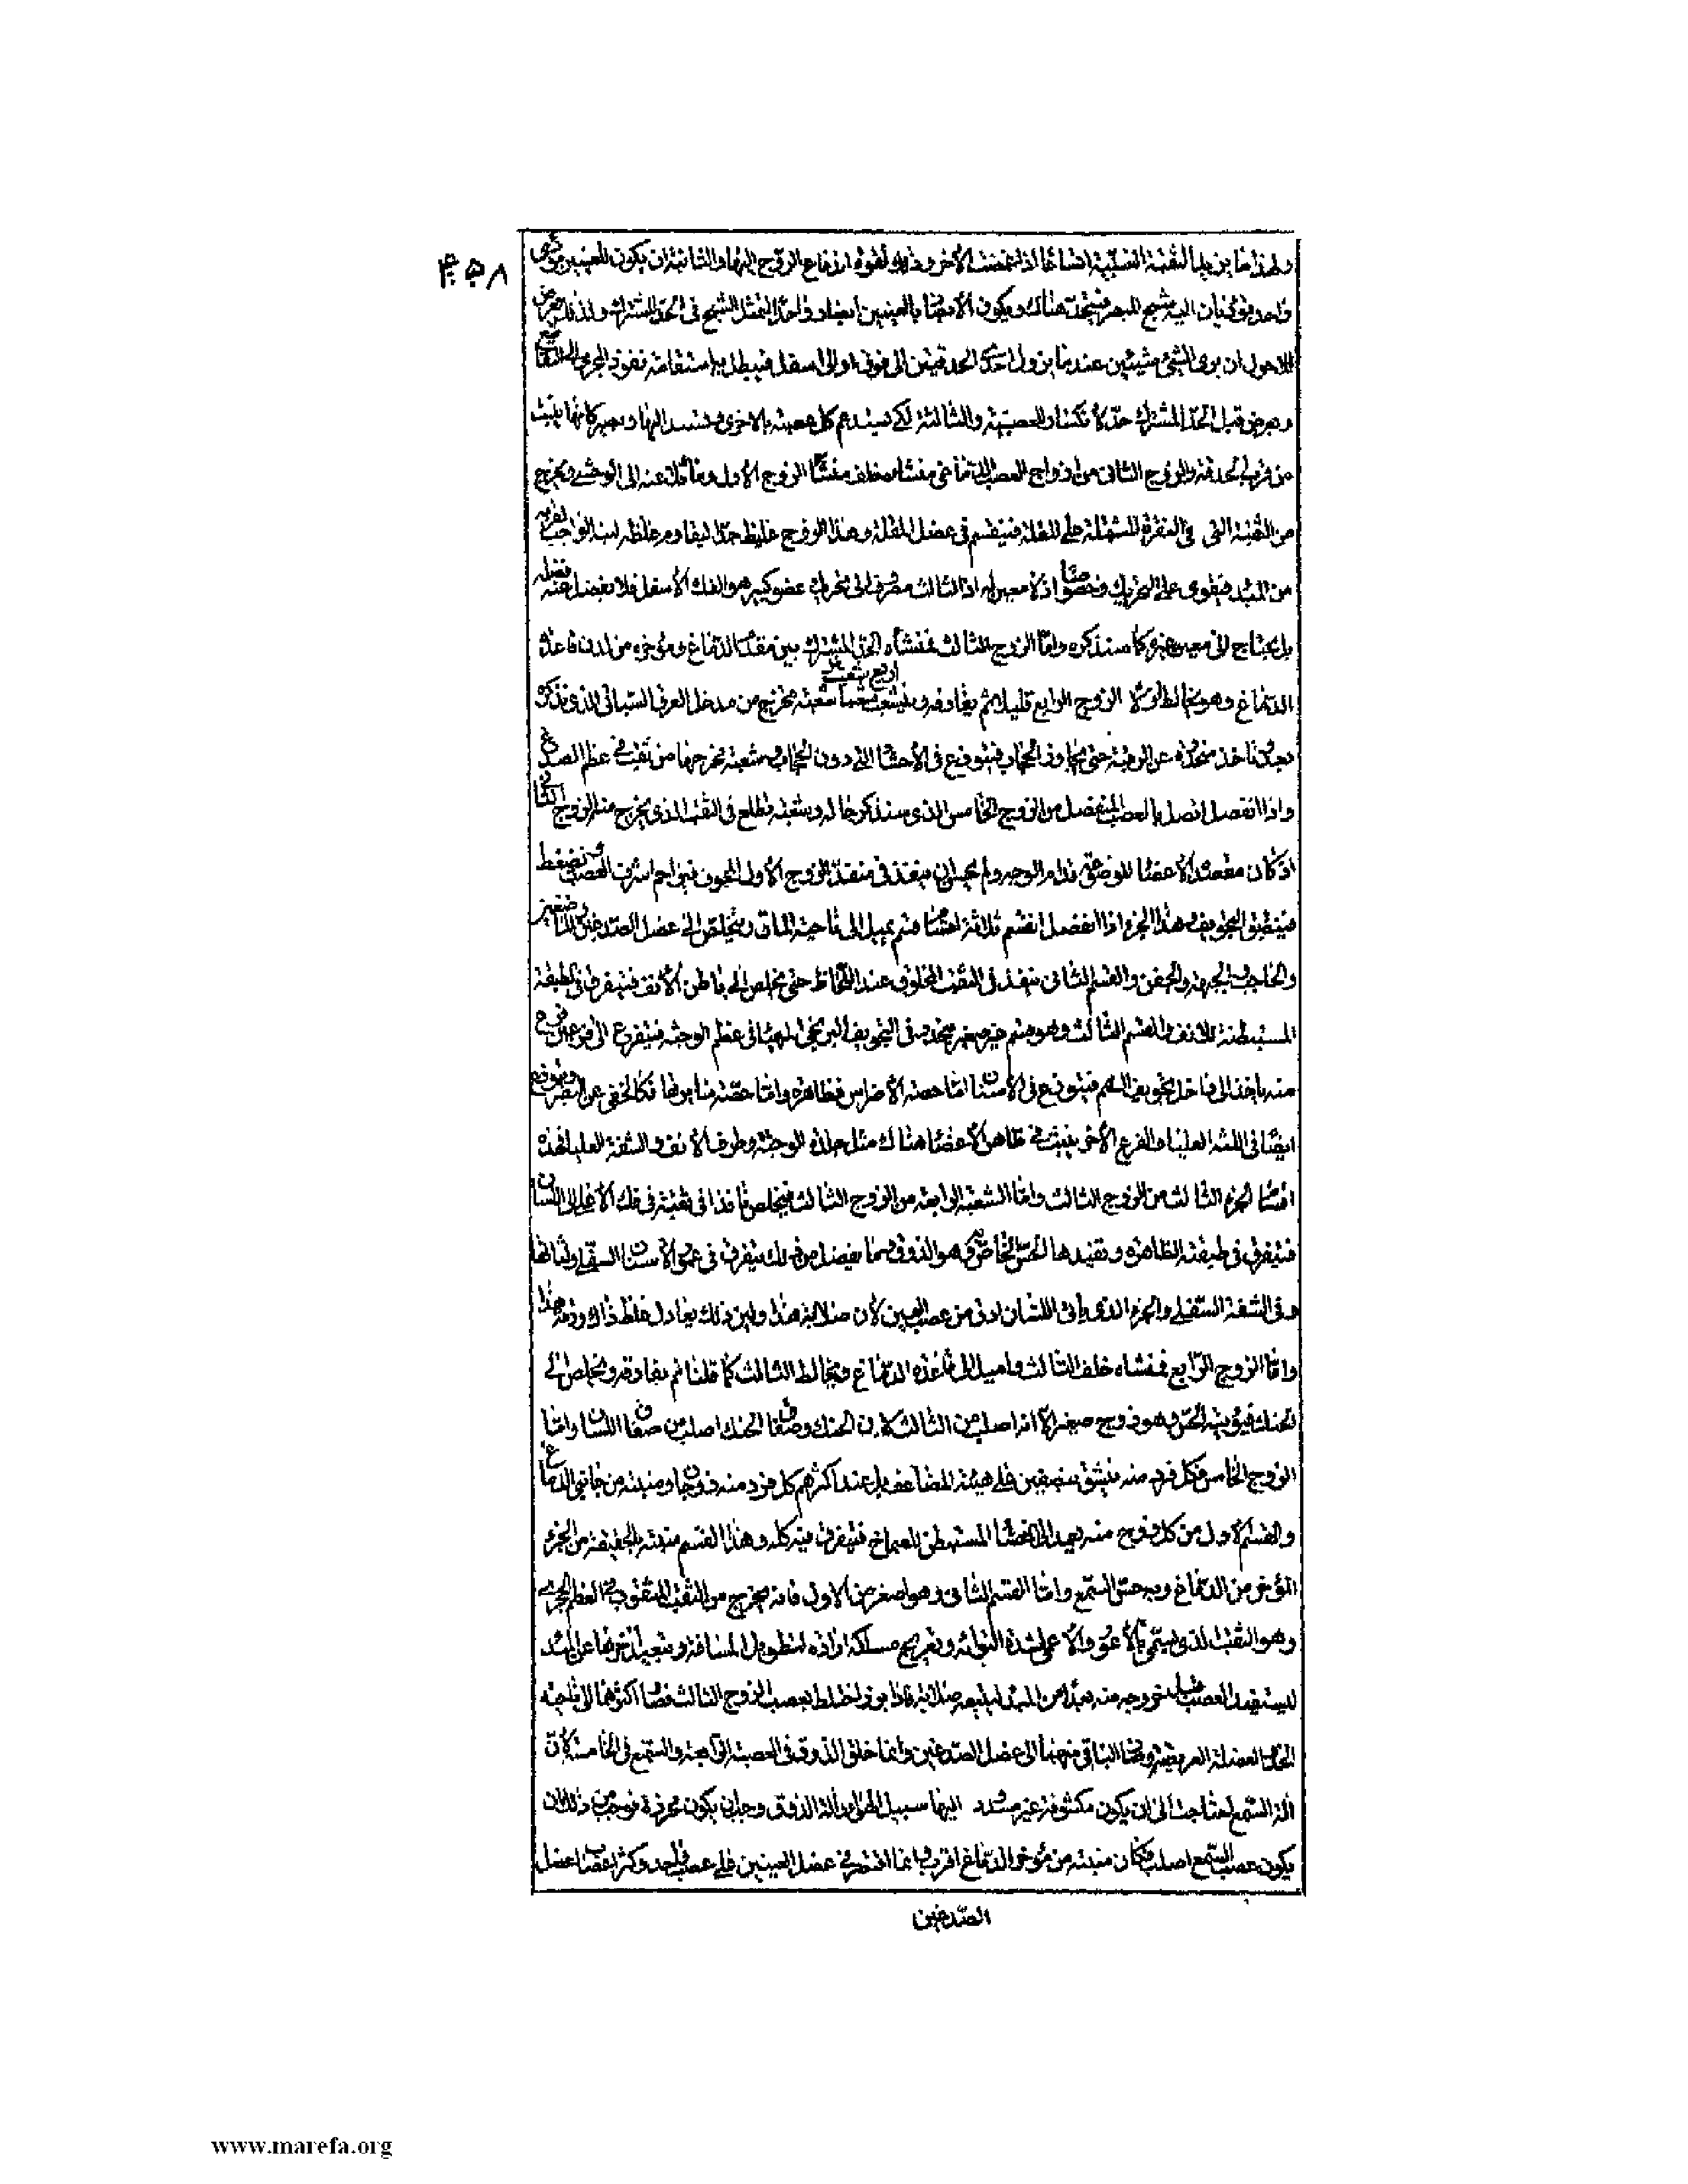 ٤٥٨
ولهذا ما يزيد الثقبة العنبية اتساعا اذا غمضت الأخرى وذلك لقوة اندفاع الروح اليها والثانية ان يكون للعينين مؤدى
واحد يؤديان اليه شبح المبصر فيتحد هناك ويكون الأبصار بالعينين ابصارا واحدا ليتمثل الشبح فى الحد المشترك ولذلك يعرض
للاحول ان يرى الشئ شيئين عندما يزول احدى الحدقتين الى فوق او الى اسفل فيبطل به استقامة نفوذ المجرى الى التقاطع
ويعرض قبل الحد المشترك حد لأنكسار العصبة والثالثة لكى يستدعم كل عصبة بالاخرى ويستند اليها ويصير كانها ينبت
من قرب الحدقة والزوج الثانى من ازواج العصب الدماغى منشاه خلف منشأ الزوج الأول ومائلا عنه الى الوحشى ويخرج
من الثقبة التى فى النقرة المشتملة على المقلة فينقسم فى عضل المقلة وهذا الزوج غليظ جدا ليقاوم غلظه لينه الواجب لقربه
من المبدء فيقوى على التحريك وخصوصا اذ لا معين له اذ الثالث مصروف الى تحريك عضو كبير هو الفك الأسفل فلا يفضل عنه فضلة
بل يحتاج الى معين غيره كما سنذكره واما الزوج الثالث فمنشأه الحد المشترك بين مقدم الدماغ ومؤخره من لدن قاعدة
الدماغ وهو يخالط اولا الزوج الرابع قليلا ثم يفارقه ويتشعب اربع شعب شعبة يخرج من مدخل العرق السباتى الذى نذكره
بعد وتاخذ منحدرة عن الرقبة حتى يجاوز الحجاب فيتوزع فى الأحشا التى دون الحجاب وشعبة مخرجها من ثقب فى عظم الصدغ
واذا انفصل اتصل بالعصب المنفصل من الزوج الخامس الذى سنذكر حاله وشعبة تطلع فى الثقب الذى يخرج منه الزوج الثانى
اذ كان مقصده الأعضا الموضوعة قدام الوجه ولم يحسن ان ينفذ فى منفذ الزوج الأول المجوف فيزاحم اشرف العصب ويضغطه
فينطبق التجويف وهذا الجزء اذا انفصل انقسم ثلاثة اقسام قسم يميل الى ناحية الماق ويتخلص الى عضل الصدغين والماضغين
والحاجب والجبهة والجفن والقسم الثانى ينفذ فى الثقب المخلوق عند اللحاظ حتى يخلص الى باطن الأنف فيتفرق فى الطبقة
المستبطنة للانف والقسم الثالث وهو قسم غير صغير ينحدر فى التجويف البربخى المهيا فى عظم الوجنة فيتفرع الى فرعين فرع
منه ياخذ الى داخل تجويف الفم فيتوزع فى الأسنان اما حصة الأضراس فظاهرة واما حصة سايرها فكالخفى عن البصر ويتوزع
ايضا فى اللثة العليا والفرع الأخر ينبث فى ظاهر الأعضا هناك مثل جلدة الوجنة وطرف الأنف والشفة العليا فهذه
اقسام الجزء الثالث من الزوج الثالث واما الشعبة الرابعة من الزوج الثالث فيتخلص نافذا فى ثقبة فى فك الأعلى الى اللسان
فيتفرق فى طبقته الظاهرة ويفيدها الحس الخاص به وهو الذوق وما يفضل من ذلك يتفرق فى عمور الأسنان السفلى ولثاتها
وفى الشفة السفلى والجزء الذى ياتى اللسان ادق من عصب العين لأن صلابة هذا ولين ذلك يعادل غلظ ذاك ودقة هذا
واما الزوج الرابع فمنشاه خلف الثالث واميل الى قاعدة الدماغ ويخالط الثالث كما قلنا ثم يفارقه ويخلص الى
الحنك فيؤتيه الحس وهو زوج صغير الا انه اصلب من الثالث لأن الحنك وصفاق الحنك اصلب من صفاق اللسان واما
الزوج الخامس فكل فرد منه ينشق بنصفين على هيئة المضاعف بل عند اكثرهم كل فرد منه زوجان ومنبته من جانبى الدماغ
والقسم الأول من كل زوج منه يعمد الى الغشا المستبطن للصماخ فيتفرق فيه كله وهذا القسم منبته بالحقيقة من الجزء
المؤخر من الدماغ وبه حس السمع واما القسم الثانى وهو اصغر من الأول فانه يخرج من الثقب المثقوب فى العظم الحجرى
وهو الثقب الذى يسمى بالأعور والأعمى لشدة التوائه وتعريج مسلكه ارادة لتطويل المسافة وتبعيد اخرها عن المبدء
ليستفيد العصب قبل خروجه منه بعدا من المبدء ليتبعه صلابة فاذا برز اختلط بعصب الزوج الثالث فصار اكثرهما الى ناحية
الخد والعضلة العريضة وصار الباقى منهما الى عضل الصدغين وانما خلق الذوق فى العصبة الرابعة والسمع فى الخامسة لأن
الة السمع احتاجت الى ان يكون مكشوفة غير مسدود اليها سبيل الهواء والة الذوق وجب ان يكون محرزة فوجب من ذلك ان
يكون عصب السمع اصلب فكان منبته من مؤخر الدماغ اقرب وانما اقتصر فى عضل العينين على عصب واحد وكثر اعصاب عضل
الصدغين
www.marefa.org